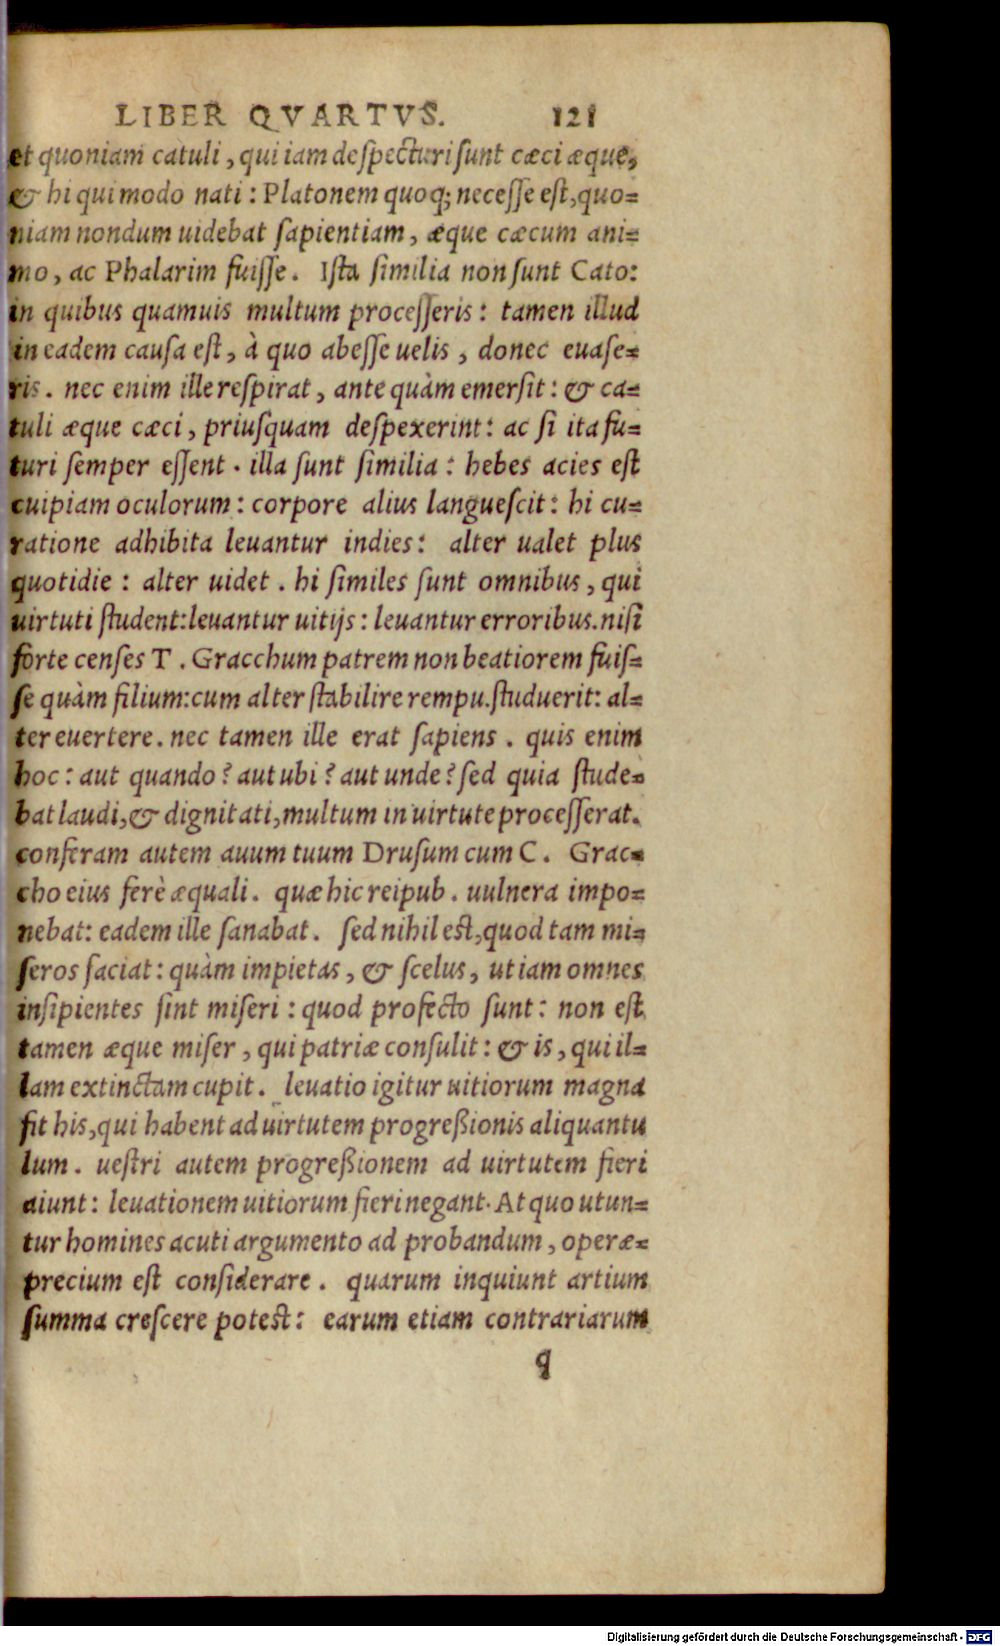 LIBER QVARTVS. 121
et quoniam catuli, qui iam despecturi sunt cæci æque,
& hi qui modo nati: Platonem quoq; necesse est, quo=
niam nondum uidebat sapientiam, æque cæcum ani=
mo, ac Phalarim fuisse. Ista similia non sunt Cato:
in quibus quamuis multum processeris: tamen illud
in eadem causa est, à quo abesse uelis, donec euase=
ris. nec enim ille respirat, ante quàm emersit: & ca=
tuli æque cæci, priusquam despexerint: ac si ita fu=
turi semper essent. illa sunt similia: hebes acies est
cuipiam oculorum: corpore alius languescit: hi cu=
ratione adhibita leuantur indies: alter ualet plus
quotidie: alter uidet. hi similes sunt omnibus, qui
uirtuti student: leuantur uitijs: leuantur erroribus. nisi
forte censes T. Gracchum patrem non beatiorem fuis=
se quàm filium: cum alter stabilire rempu. studuerit: al=
ter euertere. nec tamen ille erat sapiens. quis enim
hoc: aut quando? aut ubi? aut unde? sed quia stude=
bat laudi, & dignitati, multum in uirtute processerat.
conferam autem auum tuum Drusum cum C. Grac=
cho eius ferè æquali. quæ hic reipub. uulnera impo=
nebat: eadem ille sanabat. sed nihil est, quod tam mi=
seros faciat: quàm impietas, & scelus, ut iam omnes
insipientes sint miseri: quod profecto sunt: non est
tamen æque miser, qui patriæ consulit: & is, qui il=
lam extinctam cupit. leuatio igitur uitiorum magna
fit his, qui habent ad uirtutem progreßionis aliquantu
lum. uestri autem progreßionem ad uirtutem fieri
aiunt: leuationem uitiorum fieri negant. At quo utun=
tur homines acuti argumento ad probandum, operæ=
precium est considerare. quarum inquiunt artium
summa crescere potest: earum etiam contrariarum
q
Digitalisierung gefördert durch die Deutsche Forschungsgemeinschaft - DFG